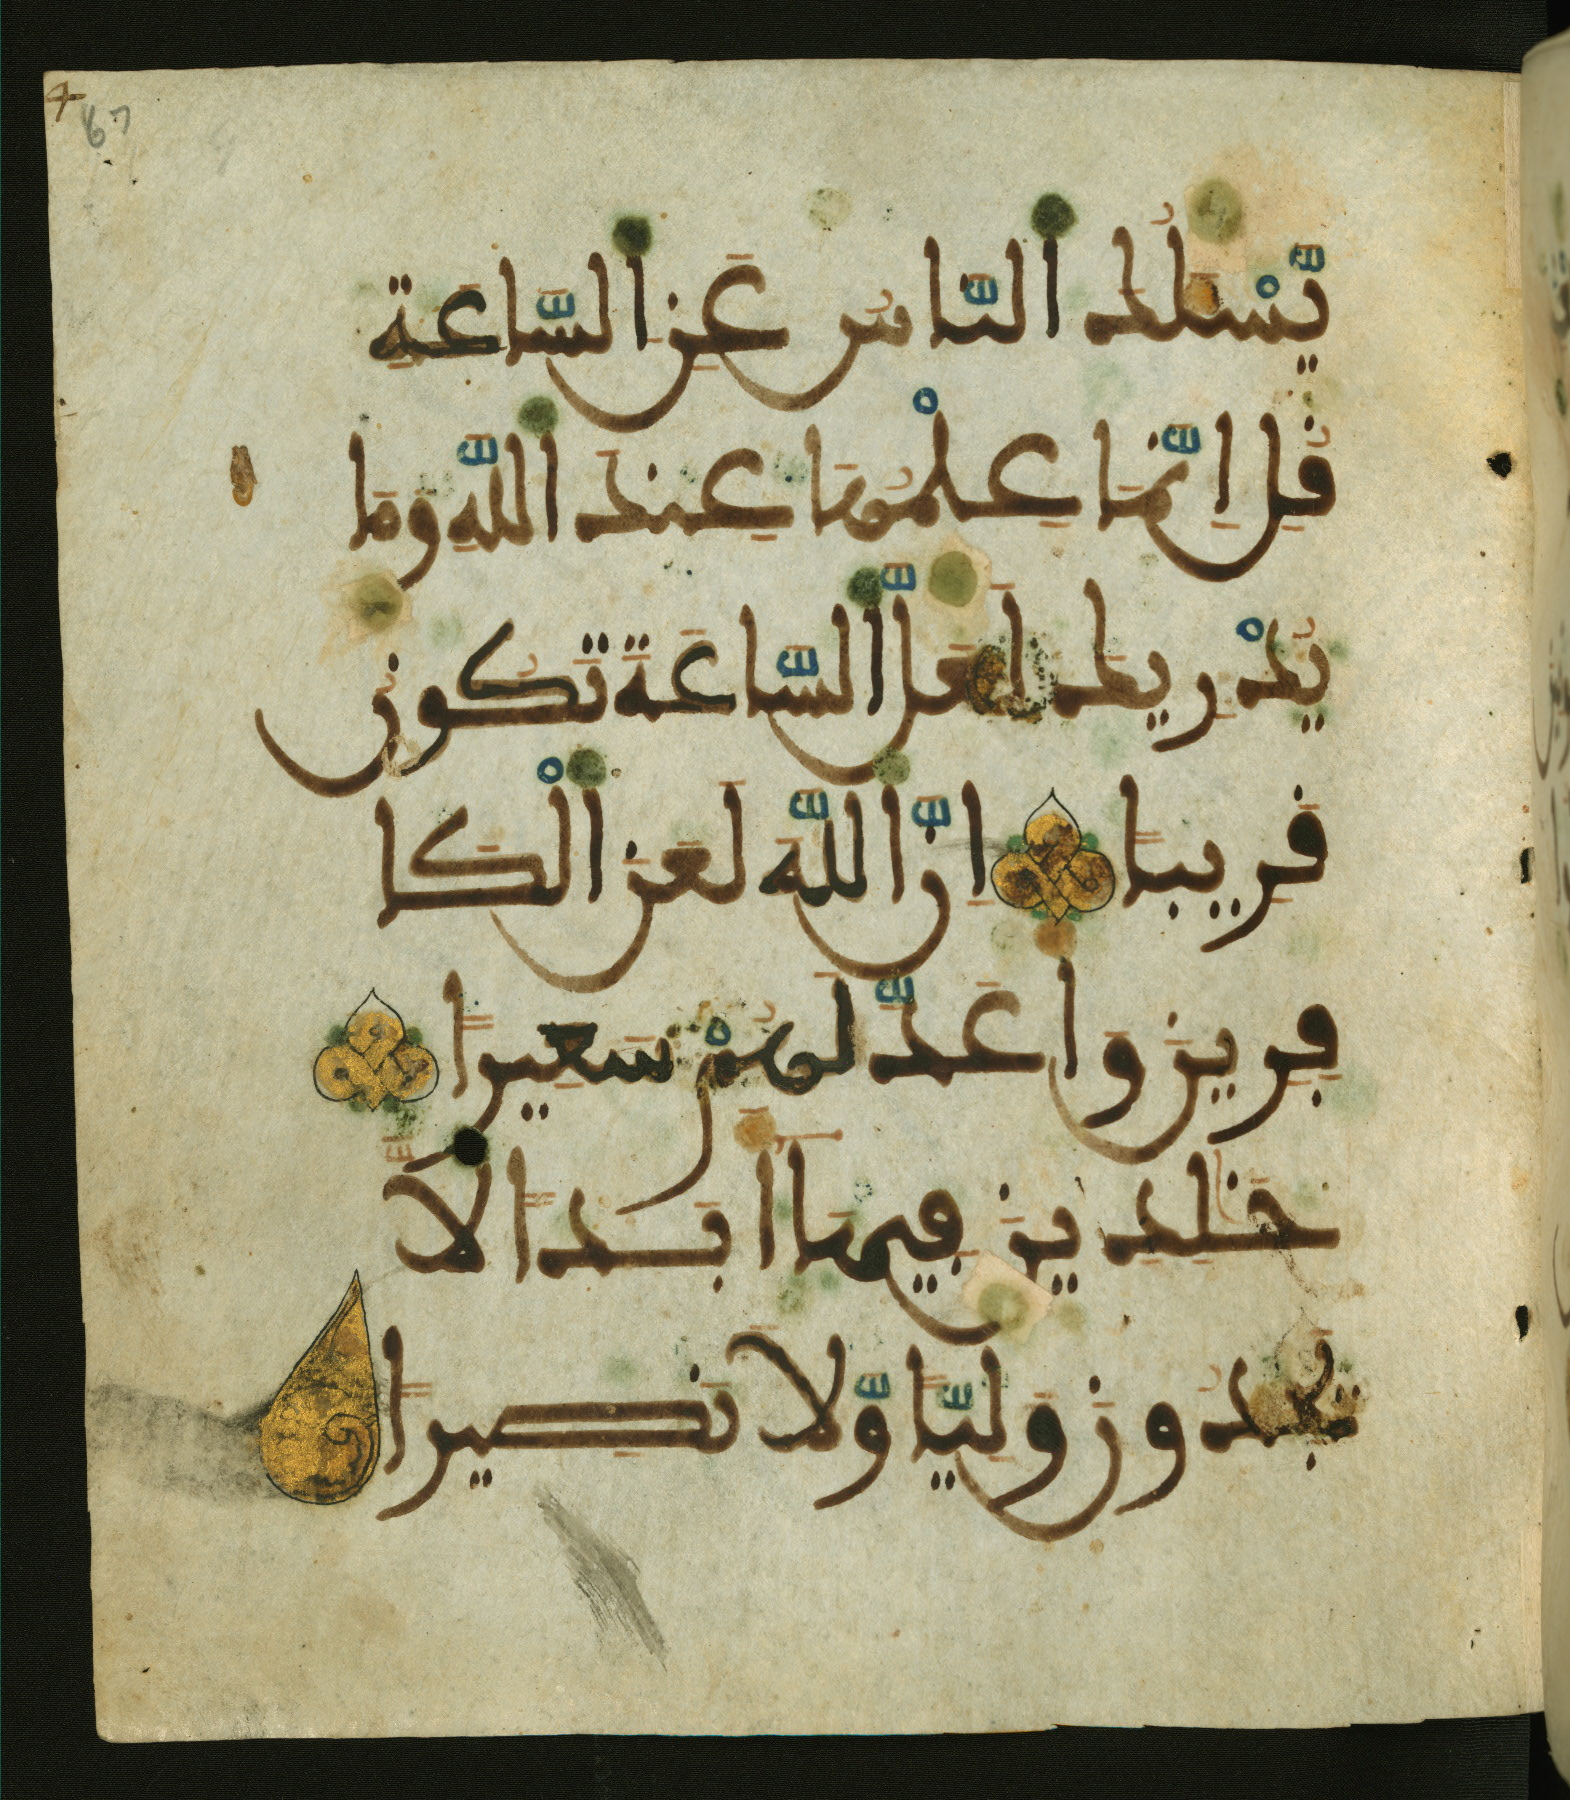 67
يَّسْـَٔلُكَ ٱلنَّاسُ عَنِ ٱلسَّاعَةِ
قُلِ اِنَّمَا عِلْمُهَا عِندَ ٱللَّهِ وَمَا
يُدْرِيكَ لَعَلَّ ٱلسَّاعَةَ تَكُونُ
قَرِيبًا اِنَّ ٱللَّهَ لَعَنَ ٱلْكَا
فِرِينَ وَأَعَدَّ لَهُمْ سَعِيرًا
خَٰلِدِينَ فِيهَآ أَبَدًا لَّا
يَجِدُونَ وَلِيًّا وَّلَا نَصِيرًا